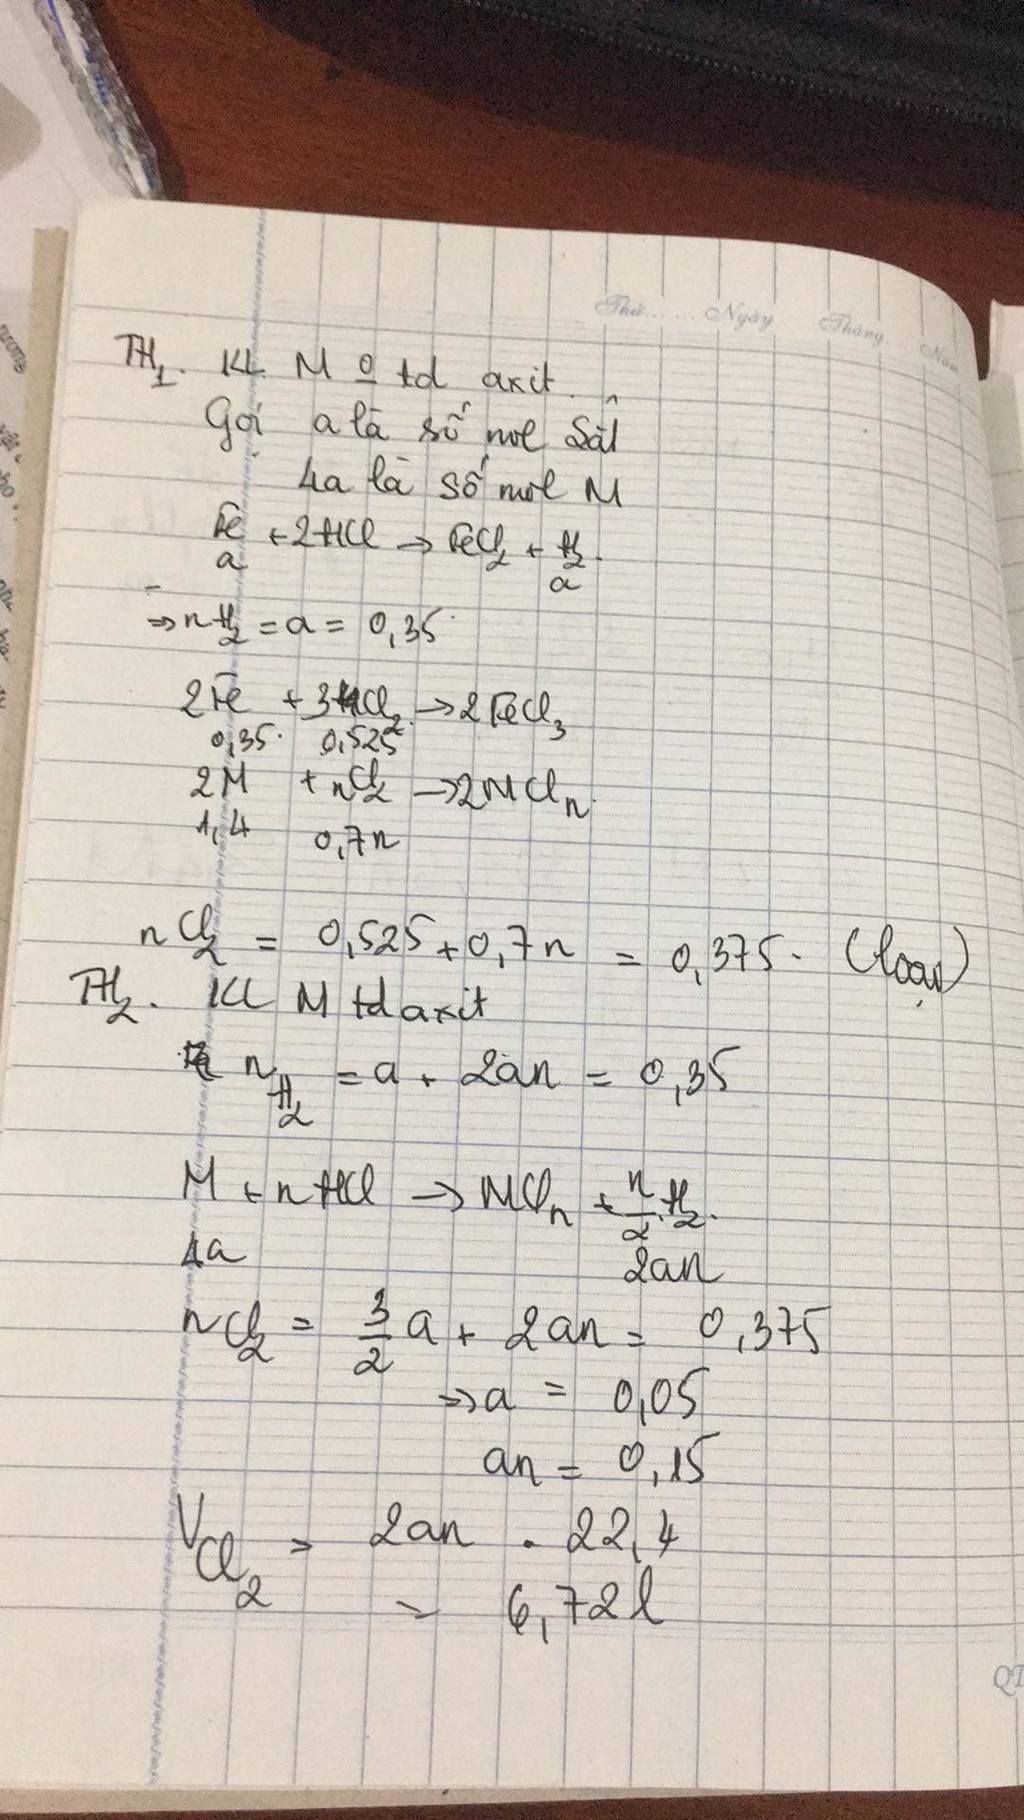 Thứ...... Ngày Tháng Năm
TH1. KL M o td axit.
Gọi a là số mol Sắt
4a là số mol M
Fe + 2HCl → FeCl2 + H2.
a a
⇒ nH2 = a = 0,35
2Fe + 3Cl2 → 2FeCl3
0,35. 0,525
2M + nCl2 → 2MCln.
1,4 0,7n
nCl2 = 0,525 + 0,7n = 0,375. (loại)
TH2. KL M td axit
nH2 = a + 2an = 0,35
M + nHCl → MCln + n/2 H2.
4a 2an
nCl2 = 3/2 a + 2an = 0,375
⇒ a = 0,05
an = 0,15
VCl2 = 2an . 22,4
= 6,72 l